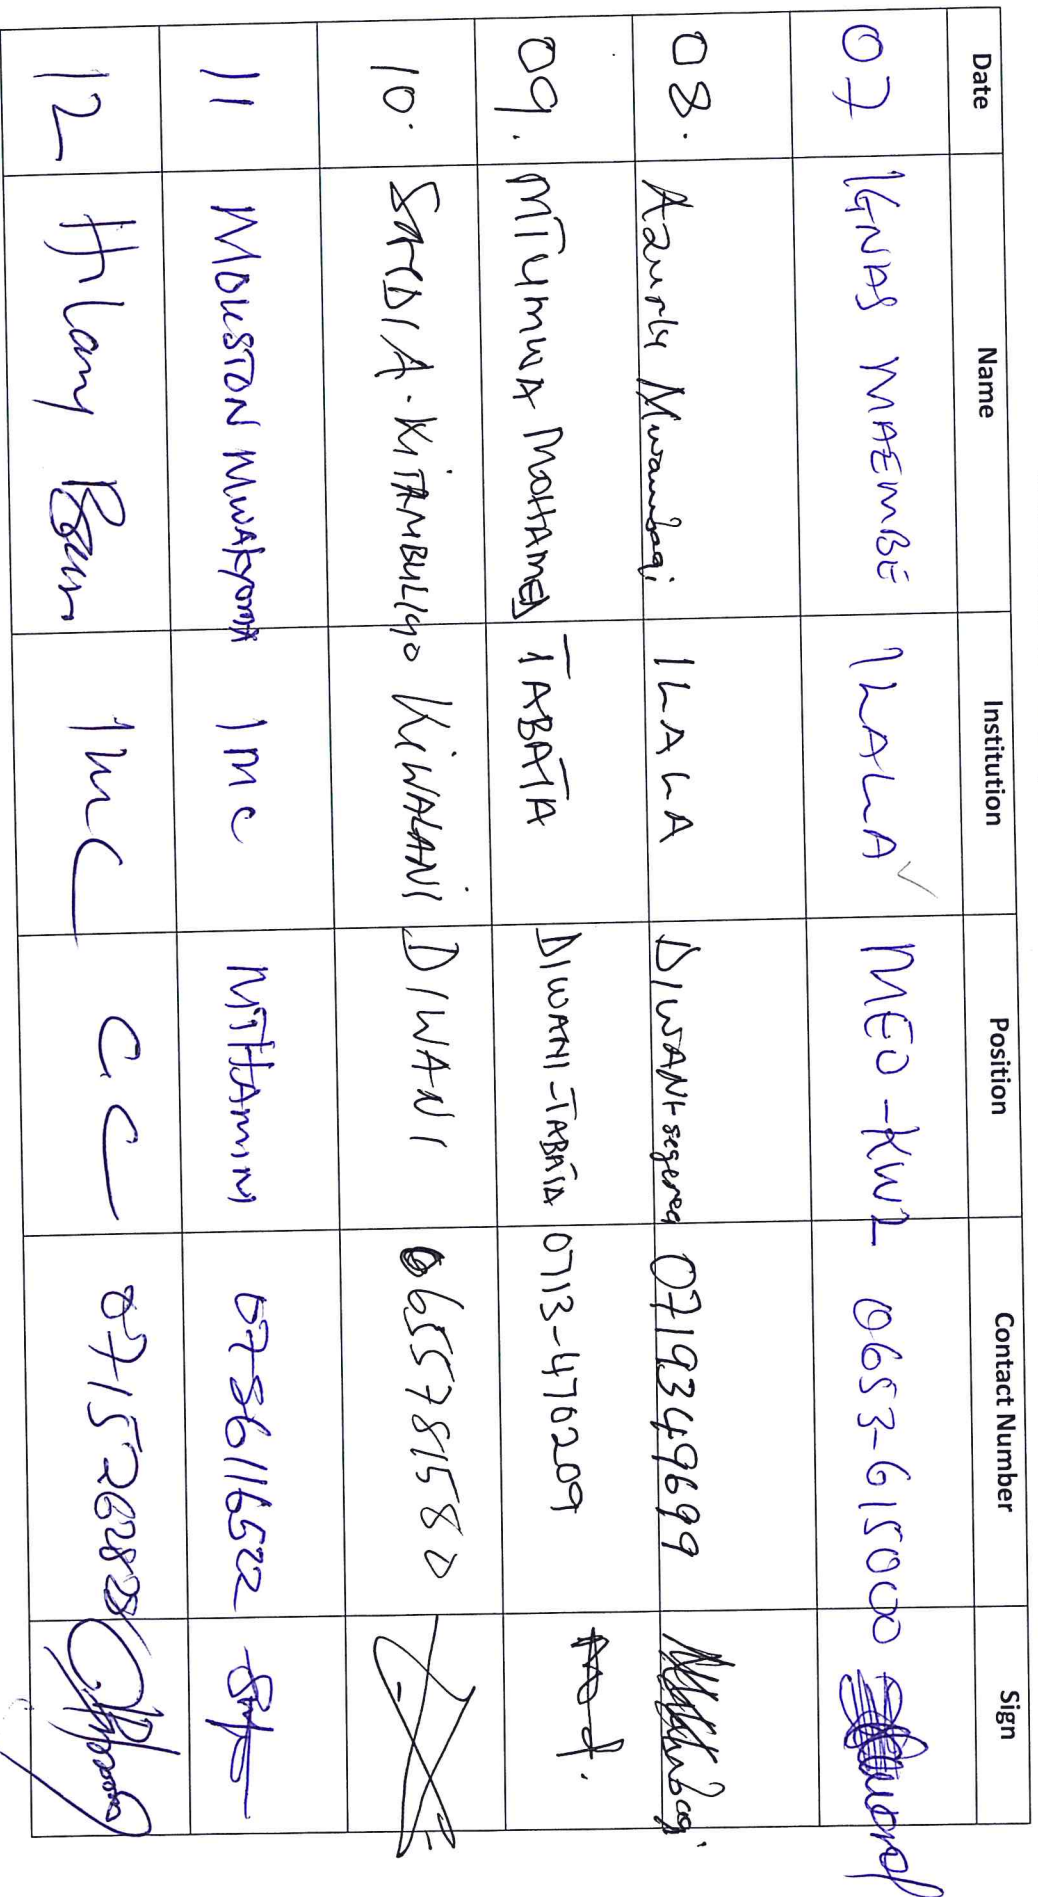 Date Name Institution Position Contact Number Sign
07 IGNAS MAEMBE ILALA MEO-KWL 0653-615000
08. Azurly Mwambagi ILALA DIWANI segerea 0719349699
09. MTUMWA MOHAMED TABATA DIWANI-TABATA 0713-470209
10. SAEDIA. KITAMBULIYO KIWALANI DIWANI 0655781580
11 MOUSTON MWAKYOMA IMC MTHAMINI 0786116522
12 Hilary IMC CC 0715262828